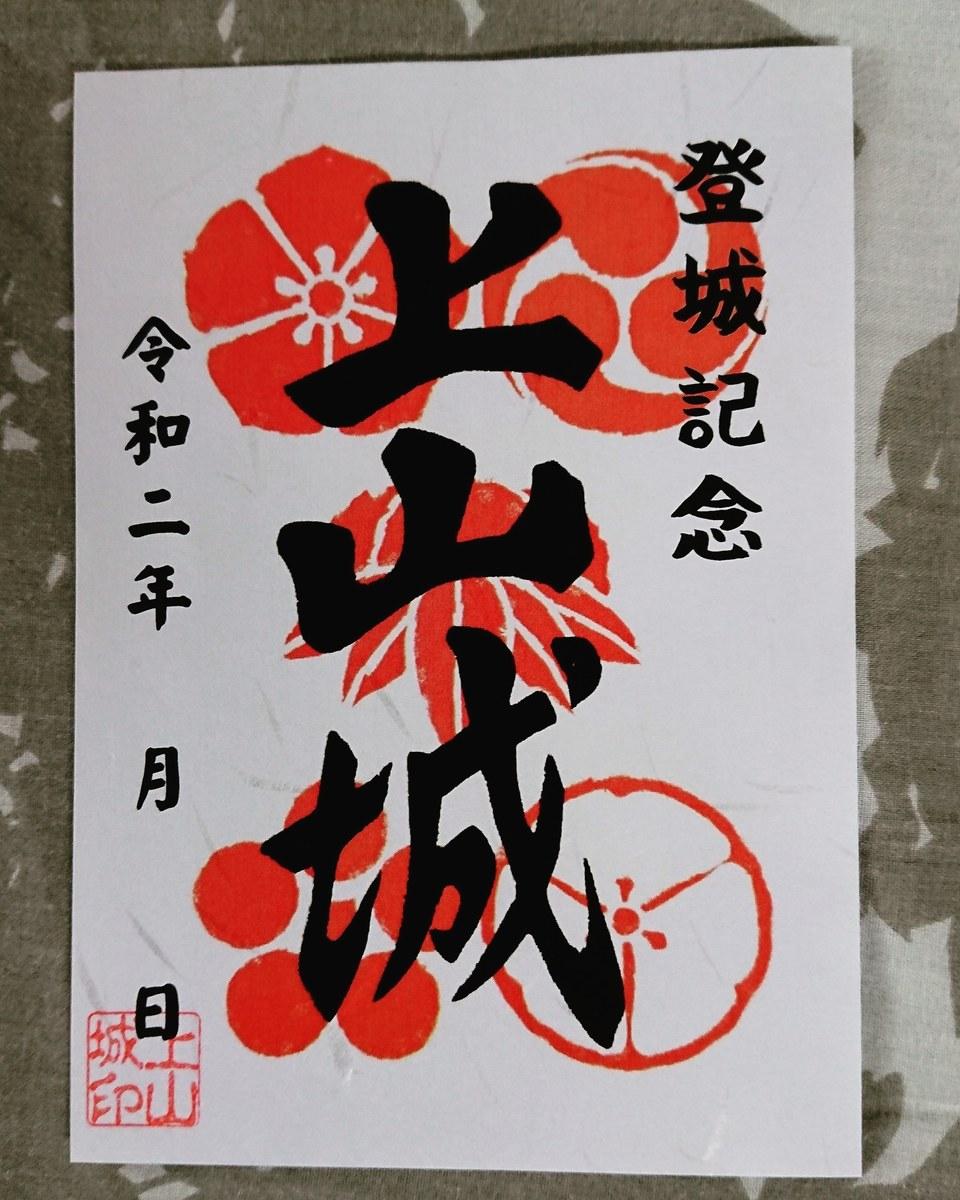 登城記念
上山城
令和二年　月　日
上山
城印